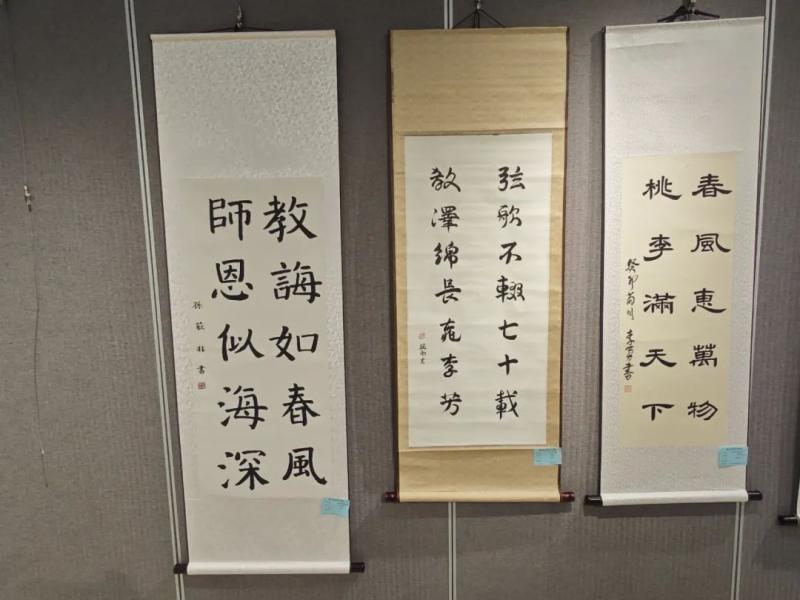 教誨如春風
師恩似海深
書
弦歌不輟七十載
教澤綿長李芳
春風惠萬物
桃李滿天下
癸卯菊月 書